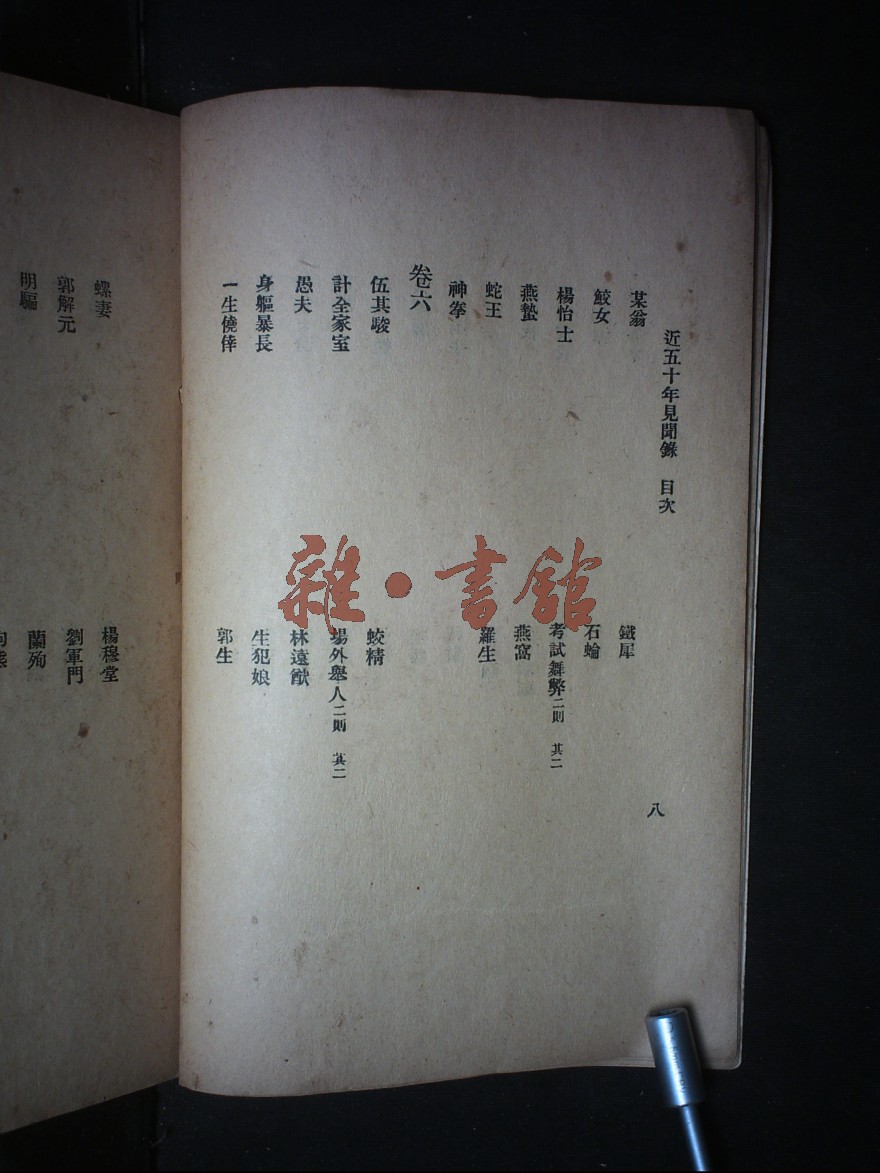 近五十年見聞錄 目次
八
某翁
鐵犀
鮫女
石蝓
楊怡士
考試舞弊二則 其二
燕蟄
燕窩
蛇王
羅生
神拳
卷六
伍其駿
蛟精
計全家室
場外舉人二則 其二
愚夫
林遠猷
身軀暴長
生犯娘
一生僥倖
郭生
螺妻
楊穆堂
郭解元
劉軍門
明驅
蘭殉
雜·書館